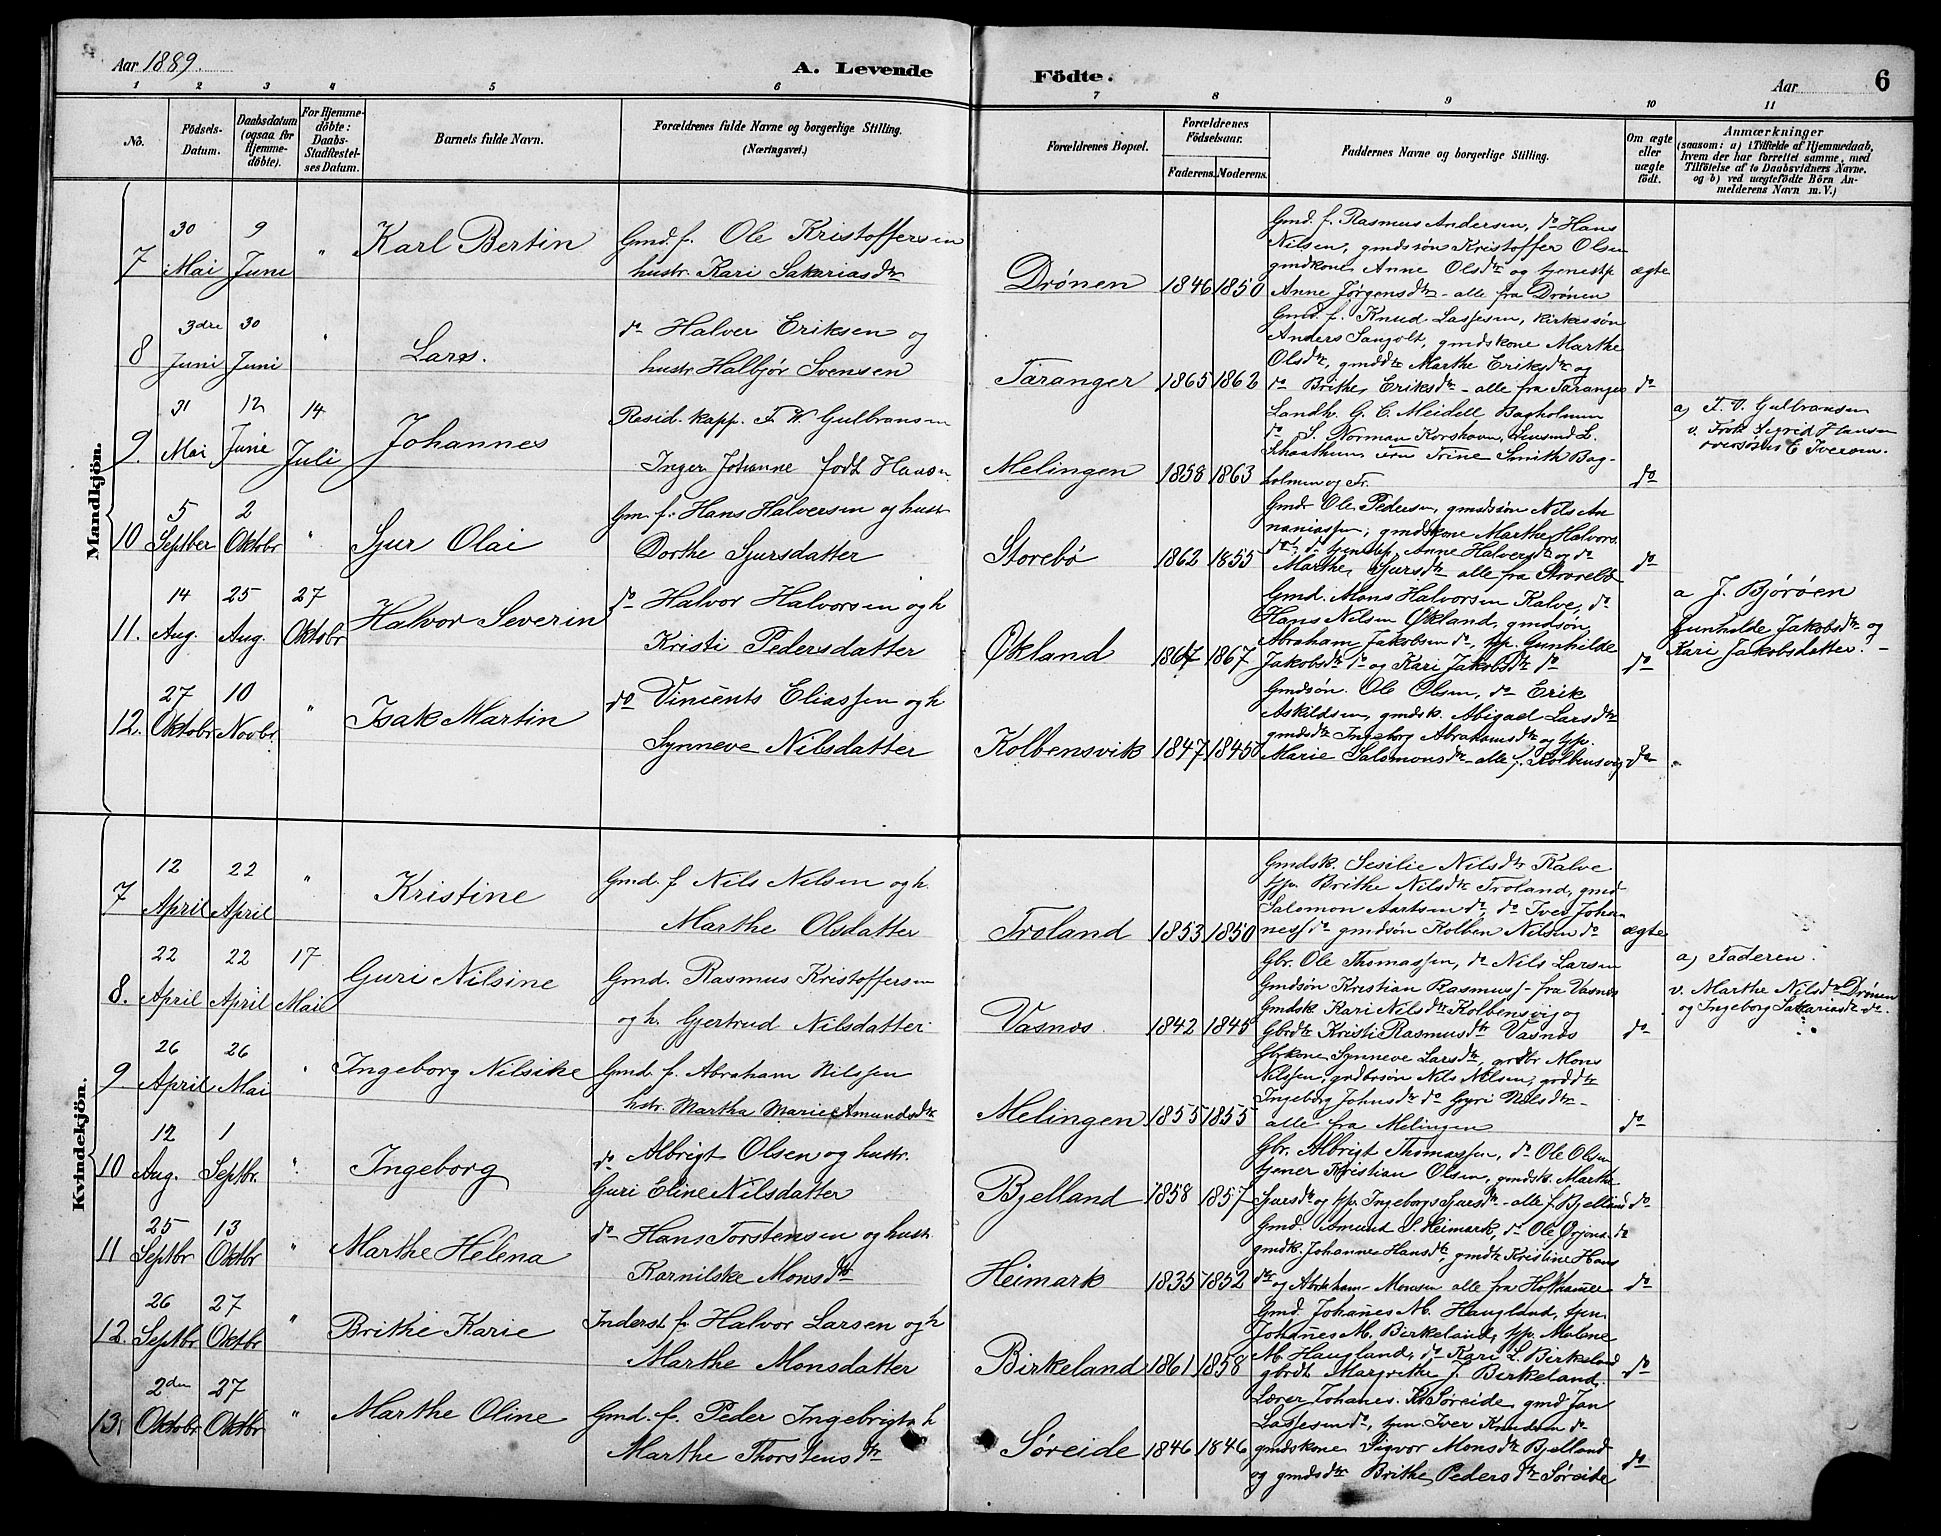 Aar 1889. A. Levende
Födte. Aar 6
1 2 3 4 5 6 7 8 9 10 11
No.
Födsels-Datum.
Daabsdatum (ogsaa for Hjemmedöbte).
For Hjemmedöbte: Daabs-Stadfæstelses Datum.
Barnets fulde Navn.
Forældrenes fulde Navne og borgerlige Stilling.
(Næringsvei.)
Forældrenes Bopæl.
Forældrenes Födselsaar.
Faderens. Moderens.
Faddernes Navne og borgerlige Stilling.
Om ægte eller uægte födt.
Anmærkninger
(saasom: a) i Tilfælde af Hjemmedaab,
hvem der har forrettet samme, med
Tilföielse af to Daabsvidners Navne.
og b) ved uægtefödte Börn An-
melderens Navn m. V.)
Mandkjön.
7 30 Mai 9 Juni " Karl Bertin
Gmd. f. Ole Kristoffersen
hustr. Kari Sakariasdtr
Drönen 1846 1850
Gmd. f. Rasmus Andersen, do Hans
Nilsen, gmdssön Kristoffer Olsen
gmdkone Anne Olsdtr og tjenestp
Anne Jörgensdtr - alle fra Drönen
ægte
8 3dre Juni 30 Juni " Lars.
do Halver Eriksen og
hustr Halbjör Svensen
Taranger 1865 1862
Gmd. f. Knud Lassesen, kirkessön
Anders Sangolt, gmdskone Marthe
Olsdtr, gmddtr Marthe Eriksdtr og
do Brithe Eriksdtr - alle fra Taranger
do
9. 31 Mai 12 Junie 14 Juli Johannes
Resid. kapp. F. W. Gulbransen
Inger Johanne født Hansn
Melingen 1858 1863
Landh. G. C. Meidell Bagholmen
do S. Norman Korshavn, Lensmd L.
fru Trine Smith Bag-
holmen og Fr.
do
a) F. V. Gulbransen
v. Frök Sigrid Hansen
E Iversen.
10 5 Septber 2 Oktobr " Sjur Olai
Gm. f. Hans Halversen og hustr
Dorthe Sjursdatter
Storebö 1862 1855
Gmdr Ole Pedersen, gmdssön Nils An-
naniassen, gmdskone Marthe Halvors
dtr, do tjenstp Anne Halversdtr og do
Marthe Sjursdtr alle fra Storebö
do
11. 14 Aug. 25 Aug. 27 Oktobr Halvor Severin
do Halvor Halvorsen og h
Kristi Pedersdatter
Økland 1867 1867
Gmd. Mons Halvorsen Kalve, do
Hans Nilsen Økland, gmdsön
Abraham Jakobsen do, tjp. Gunhilde
Jakobsdtr do og Kari Jakobsdtr do
do
a J. Björöen
Gunhilde Jakobsdtr og
Kari Jakobsdatter. -
12. 27 Oktobr 10 Novbr " Isak Martin
do Vincents Eliassen og h
Synneve Nilsdatter
Kolbensvik 1847 1845
Gmdsön. Ole Olsen, do Erik
Askildsen, gmdsk. Abigael Larsdtr
gmdsdtr Ingeborg Abrahamsdtr og tjp.
Marie Salomonsdtr - alle f. Kolbensvig
do
Kvindekjön.
7 12 April 22 April " Kristine
Gmd. f Nils Nilsen og h.
Marthe Olsdatter
Troland 1853 1850
Gmdsk. Sesilie Nilsdtr Kalve
tjp. Brithe Nilsdtr Troland, gmd
Salomon Aartsen do, do Iver Johan-
ness do gmdsön Kolben Nilsen do
ægte
8. 22 April 22 April 17 Mai Guri Nilsine
Gmd. Rasmus Kristoffersen
og h. Gjertrud Nilsdatter
Vasnæs. 1842 1845
Gbr. Ole Thomassen, do Nils Larsen
Gmdsön Kristian Rasmuss - fra Vasnæs
Gmdsk Kari Nilsdtr Kolbensvig og
Gbrdtr Kristi Rasmusdtr Vasnæs
do
a) Faderen.
v. Marthe Nilsdtr Drönen
og Ingeborg Sakariasdtr do.
9 26 April 26 Mai " Ingeborg Nilsike
Gmd. f. Abraham Nilssen
hstr. Martha Marie Amundsdtr
Melingen 1855 1855
Gbrkone Synneve Larsdtr, grdbr Mons
Nilssen, grdbrsön Nils Nilsen, grddtr
Ingeborg Johnsdtr do Gyri Nilsdtr -
alle fra Melingen
do
10 12 Aug. 1 Septbr. " Ingeborg
do Albrigt Olsen og hustr.
Guri Eline Nilsdatter
Bjelland 1858 1857
Gbr. Albrigt Thomassen, do Ole Olsen
tjener Kristian Olsen, gmdsk. Marthe
Sjursdtr og tjp. Ingeborg Sjursdtr - alle f. Bjelland
do
11 25 Septbr 13 Oktbr " Marthe Helena
do Hans Torstensen og hustr.
Karnilske Monsdtr
Heimark 1835 1852
Gmd. Amund S. Heimark, do Ole Örjona do
gmdk. Johannes Hansdtr, gmdtr Kristine Hans
dtr og Abraham Monsen alle fra
do
12. 26 Septbr 27 Oktbr " Brithe Karie
Inderst f. Halvor Larsen og h
Marthe Monsdatter
Birkeland 1861 1858
Gmd. Johanes M. Haugland, tjen
Johanes M. Birkeland, tjp. Malene
M. Haugland, do Kari L. Birkeland
gbrdt Margrethe J. Birkeland.
do
13. 2den Oktobr 27 Oktbr " Marthe Oline
Gmd. f. Peder Ingebrigtn h
Marthe Thorstensdtr
Söreide 1846 1846
Lærer Johanes. K Söreide gmd Jan
Lassesen do, tjen Iver Knudsen do
gmdskone Sigvor Monsdtr Bjelland
og gmdsdtr Brithe Pedersdtr Söreide
do